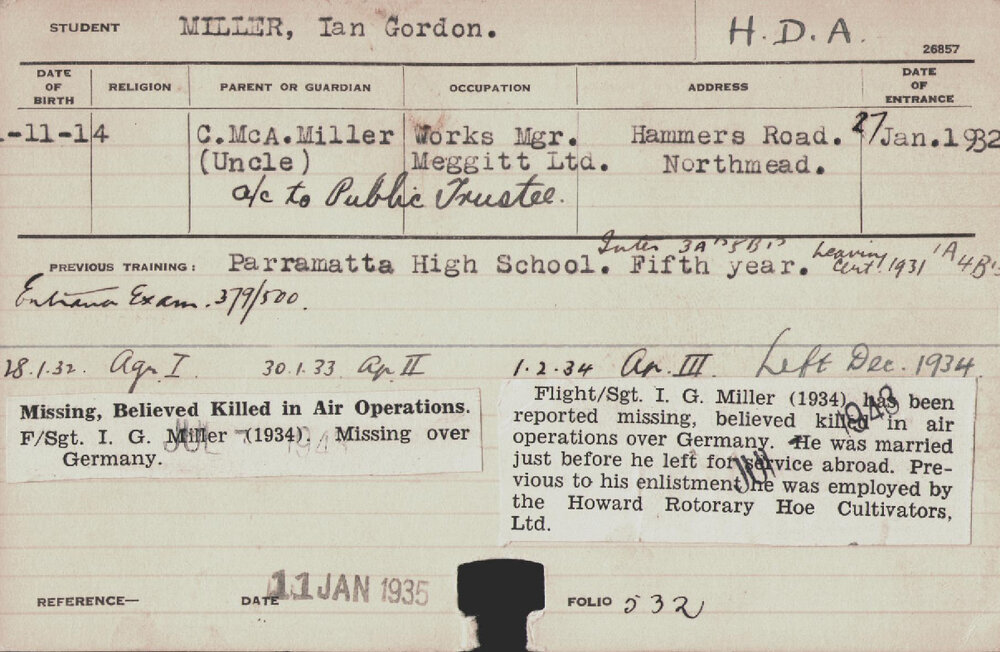 STUDENT MILLER, Ian Gordon. H.D.A. 26857
DATE OF BIRTH RELIGION PARENT OR GUARDIAN OCCUPATION ADDRESS DATE OF ENTRANCE
-11-14 C.McA.Miller Works Mgr. Hammers Road. 27 Jan.1932
(Uncle) Meggitt Ltd. Northmead.
a/c to Public Trustee.
Inter 3A's 5B's
PREVIOUS TRAINING: Parramatta High School. Fifth year. Leaving Cert 1931 1A 4B's
Entrance Exam. 379/500.
28.1.32. Agr. I 30.1.33 Ag. II 1.2.34 Ag. III Left Dec. 1934
Missing, Believed Killed in Air Operations.
F/Sgt. I. G. Miller (1934). Missing over
Germany.
JUL
Flight/Sgt. I. G. Miller (1934) has been
reported missing, believed killed in air
operations over Germany. He was married
just before he left for service abroad. Pre-
vious to his enlistment he was employed by
the Howard Rotorary Hoe Cultivators,
Ltd.
JUL 1943
REFERENCE— DATE 11 JAN 1935 FOLIO 532